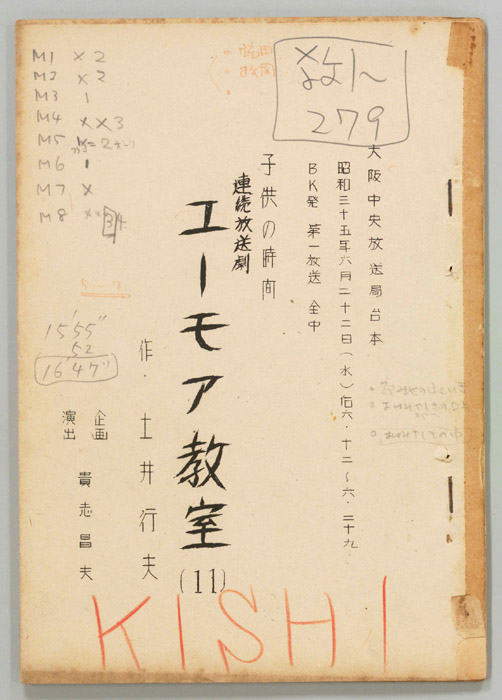 279
大阪中央放送局台本
昭和三十五年六月二十二日(水)后六・十二~六・二十九
BK発 第一放送 全中
子供の時間
連続放送劇
ユーモア教室
(11)
作・土井行夫
企画
演出
貴志昌夫
M1 × 2
M2 × 2
M3 1
M4 × × 3
M5
M6 1
M7 ×
M8
15'55"
52
16'47"
KISHI